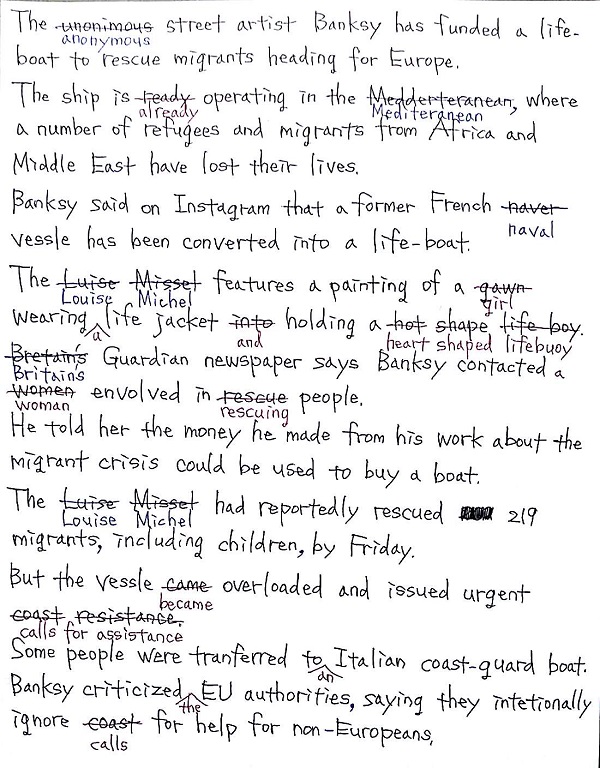 The unonimous street artist Banksy has funded a life-
anonymous
boat to rescue migrants heading for Europe.
The ship is ready operating in the Medderteranean, where
already Mediteranean
a number of refugees and migrants from Africa and
Middle East have lost their lives.
Banksy said on Instagram that a former French naver
naval
vessle has been converted into a life-boat.
The Luise Misset features a painting of a gawn
Louise Michel girl
wearing life jacket into holding a hot shape life boy.
a and heart shaped lifebuoy
Bretain's Guardian newspaper says Banksy contacted a
Britains
women envolved in rescue people.
woman rescuing
He told her the money he made from his work about the
migrant crisis could be used to buy a boat.
The Luise Misset had reportedly rescued 219
Louise Michel
migrants, including children, by Friday.
But the vessle came overloaded and issued urgent
became
coast resistance.
calls for assistance
Some people were tranferred to Italian coast-guard boat.
an
Banksy criticized EU authorities, saying they intetionally
the
ignore coast for help for non-Europeans,
calls